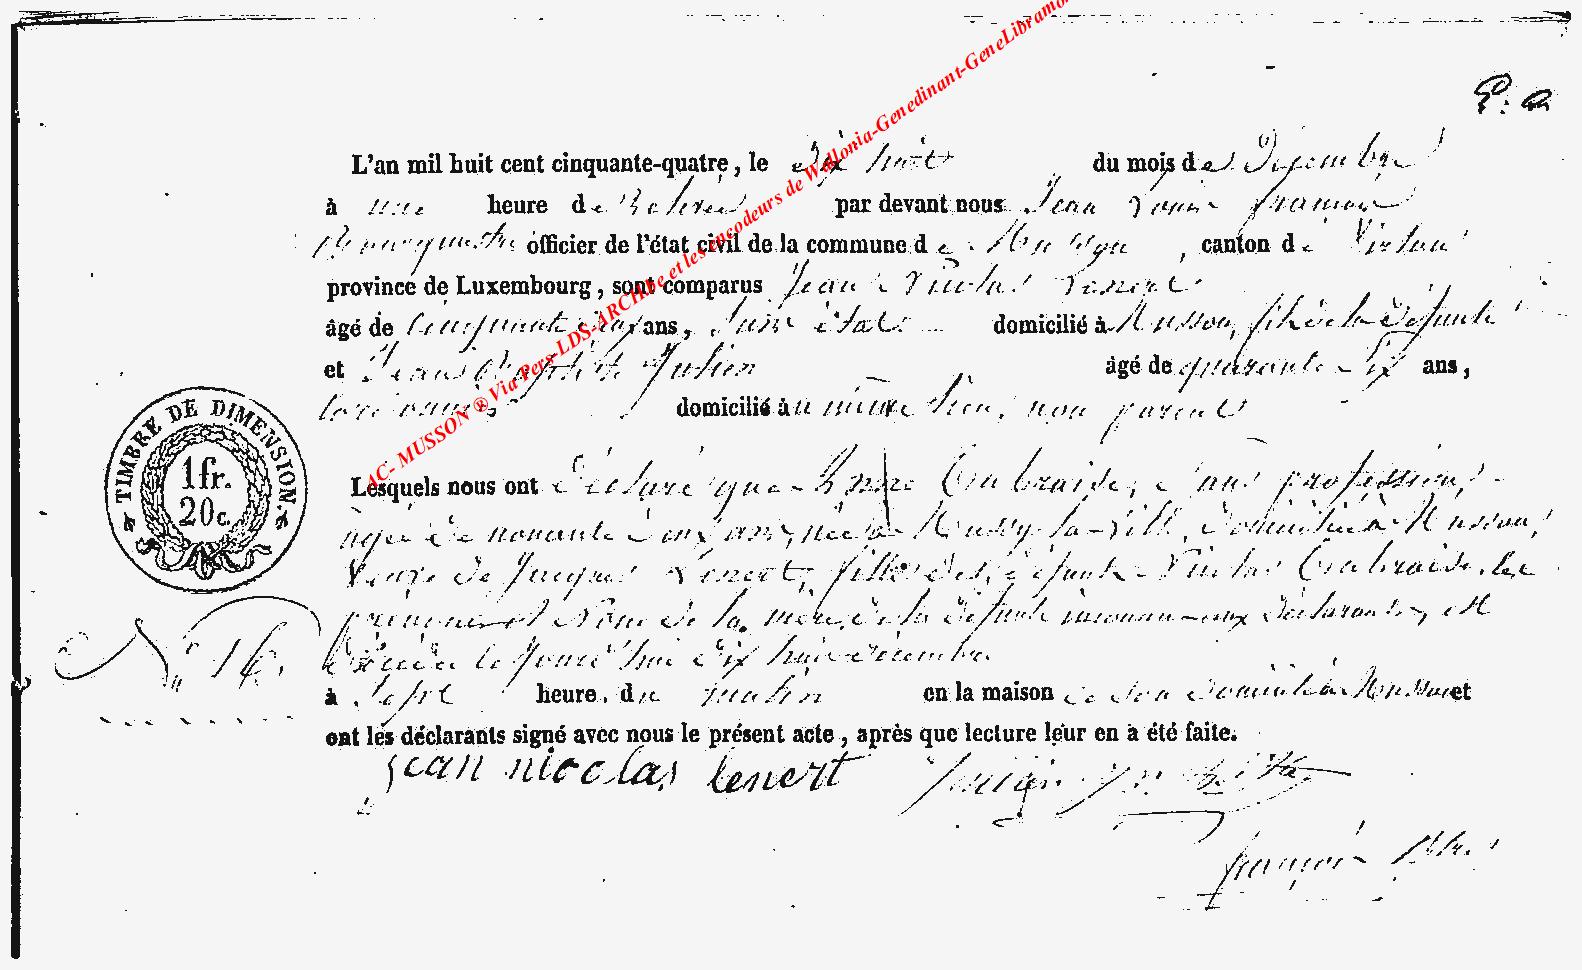 L'an mil huit cent cinquante-quatre, le dix huit du mois de Décembre
à une heure de Relevée par devant nous Jean Louis François
Bourgmestre officier de l'état civil de la commune de Musson, canton de Virton
province de Luxembourg, sont comparus Jean Nicolas Lenert
âgé de Cinquante six ans, sans état domicilié à Musson, fils de la défunte
et Jean Baptiste Julien âgé de quarante six ans,
domicilié à u même lieu, non parent
Lesquels nous ont déclaré que Anne Cambraise, sans profession,
agée de nonante deux ans, née à Mussy-la-Ville, domiciliée à Musson,
Veuve de Jacques Lenert, fille des défunts Nicolas Cambraise, les
prénoms et Nom de la mère de la défunte inconnu aux déclarants, est
décédée le Jourd'hui dix huit décembre
à Sept heure. du matin en la maison de son domicile à Musson et
ont les déclarants signé avec nous le présent acte, après que lecture leur en a été faite.
jean nicolas lenert Julien J. Btte
françois
TIMBRE DE DIMENSION.
1fr.
20c.
N° 16
AC- MUSSON ® Via Pers-LDS-ARCHive et les encodeurs de Wallonia-Genedinant-GeneLibramo